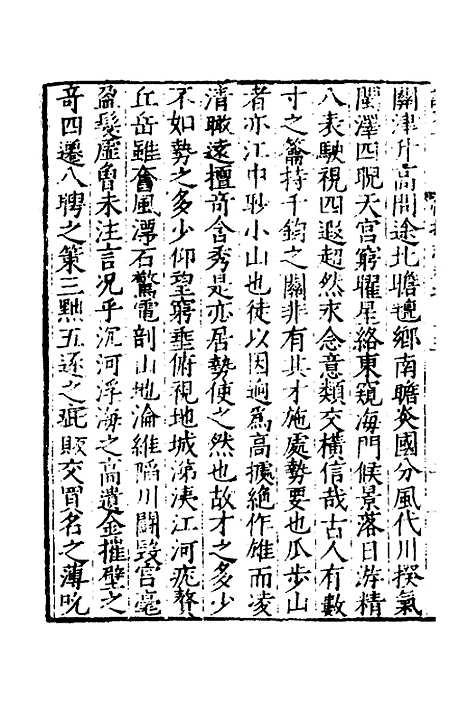 關津升高問途北瞻氊鄉南瞻炎國分風代川揆氣
閩澤四睨天宮窮曜星絡東窺海門候景落日游精
八表駛視四遐超然永念意類交橫信哉古人有數
寸之籥持千鈞之關非有其才施處勢要也瓜步山
者亦江中眇小山也徒以因迥爲高據絶作雄而凌
清瞰遠擅竒含秀是亦居勢使之然也故才之多少
不如勢之多少仰望窮垂俯視地城涕洟江河疣贅
丘岳雖奮風漂石驚電剖山地淪維陷川鬬毀宮毫
盈髮虛曾未注言況乎沉河浮海之高遺金摧壁之
奇四遷八聘之策三黜五逐之疵販交買名之薄吮